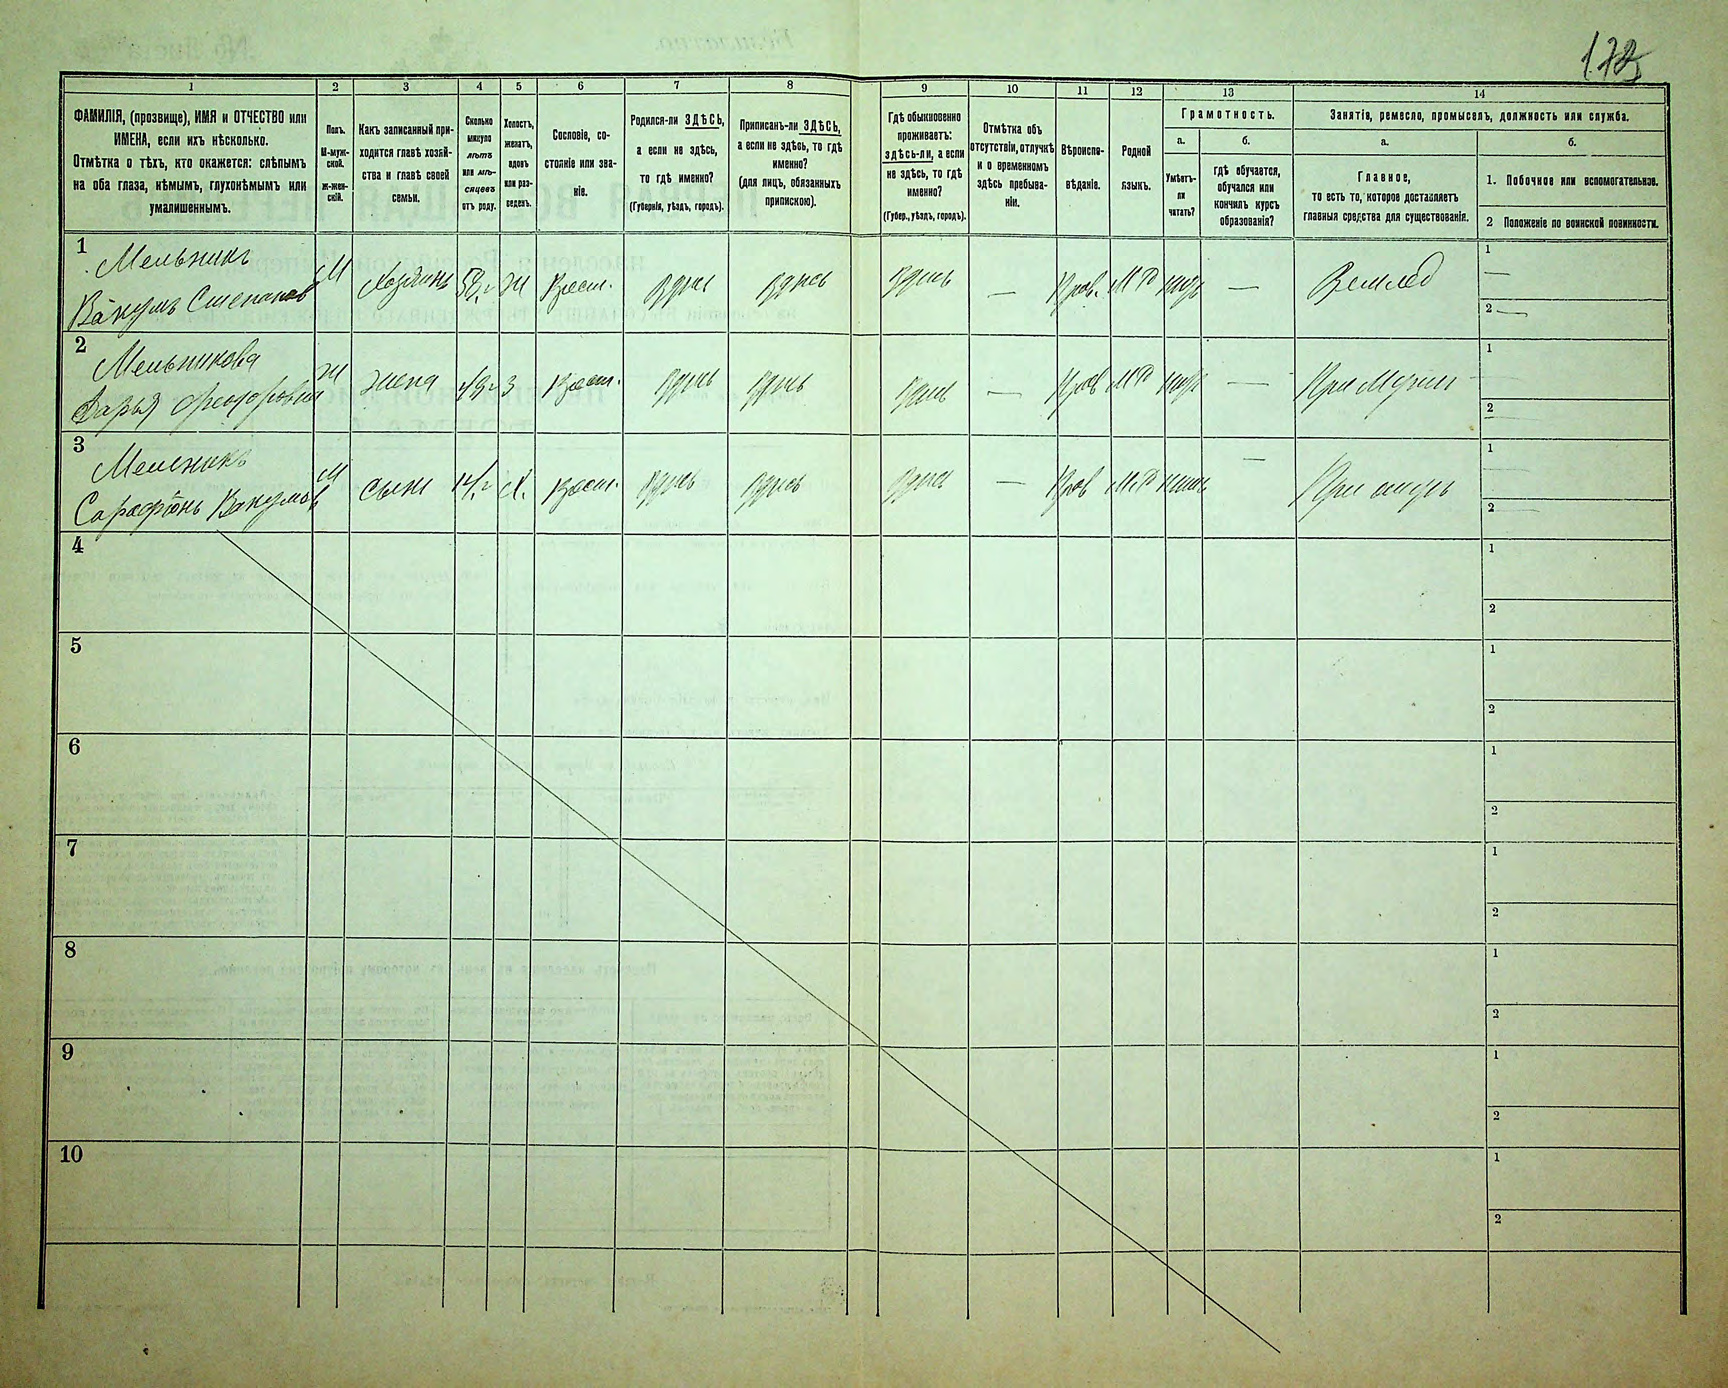 178
1
2
3
4
5
6
7
8
9
10
11
12
13
14
ФАМИЛІЯ, (прозвище), ИМЯ и ОТЧЕСТВО или
ИМЕНА, если ихъ нѣсколько.
Отмѣтка о тѣхъ, кто окажется: слѣпымъ
на оба глаза, нѣмымъ, глухонѣмымъ или
умалишеннымъ.
Полъ.
М-муж-
ской.
ж-жен-
скій.
Какъ записанный при-
ходится главѣ хозяй-
ства и главѣ своей
семьи.
Сколько
минуло
лѣтъ
или мѣ-
сяцевъ
отъ роду.
Холостъ,
женатъ,
вдовъ
или раз-
веденъ.
Сословіе, со-
стояніе или зва-
ніе.
Родился-ли ЗДѢСЬ,
а если не здѣсь,
то гдѣ именно?
(Губернія, уѣздъ, городъ).
Приписанъ-ли ЗДѢСЬ,
а если не здѣсь, то гдѣ
именно?
(для лицъ, обязанныхъ
припискою).
Гдѣ обыкновенно
проживаетъ:
здѣсь-ли, а если
не здѣсь, то гдѣ
именно?
(Губер., уѣздъ, городъ).
Отмѣтка объ
отсутствіи, отлучкѣ
и о временномъ
здѣсь пребыва-
ніи.
Вѣроиспо-
вѣданіе.
Родной
языкъ.
Грамотность.
а.
б.
Умѣетъ-
ли
читать?
гдѣ обучается,
обучался или
кончилъ курсъ
образованія?
Занятія, ремесло, промыселъ, должность или служба.
а.
б.
Главное,
то есть то, которое доставляетъ
главныя средства для существованія.
1. Побочное или вспомогательное.
2 Положеніе по воинской повинности.
1
Мельникъ
Вакумъ Степановъ
М
Хозяинъ
Ж
Крест.
Здѣсь
Здѣсь
Здѣсь
—
Прав.
М Р
—
Землед
1
—
2 —
2
Мельникова
Дарья Федоровна
Ж
жена
З
Крест.
Здѣсь
Здѣсь
Здѣсь
—
Прав
М Р
—
При мужи
1
2
3
Мельникъ
Сарафіонъ Вакумов
М
сынъ
14
Х.
Крест.
Здѣсь
Здѣсь
Здѣсь
—
Прав
М Р
—
При отцѣ
1
2
4
1
2
5
1
2
6
1
2
7
1
2
8
1
2
9
1
2
10
1
2